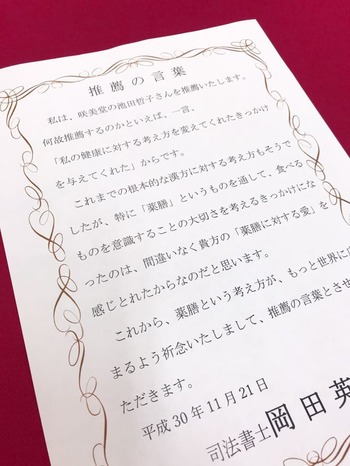 推薦の言葉
私は、咲美堂の池田哲子さんを推薦いたします。
何故推薦するのかといえば、一言、
「私の健康に対する考え方を変えてくれたきっかけ
を与えてくれた」からです。
これまでの根本的な漢方に対する考え方もそうで
したが、特に「薬膳」というものを通して、食べる
ものを意識することの大切さを考えるきっかけにな
ったのは、間違いなく貴方の「薬膳に対する愛」を
感じとれたからなのだと思います。
これから、薬膳という考え方が、もっと世界に
まるよう祈念いたしまして、推薦の言葉とさせ
ただきます。
平成30年11月21日
司法書士 岡田英